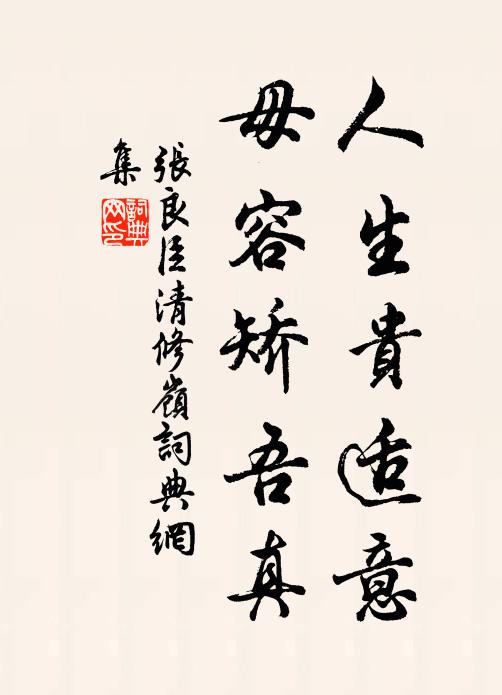 人生貴适意
毋容矫吾真
張良臣清修嶺詞典網
集
詞典网印